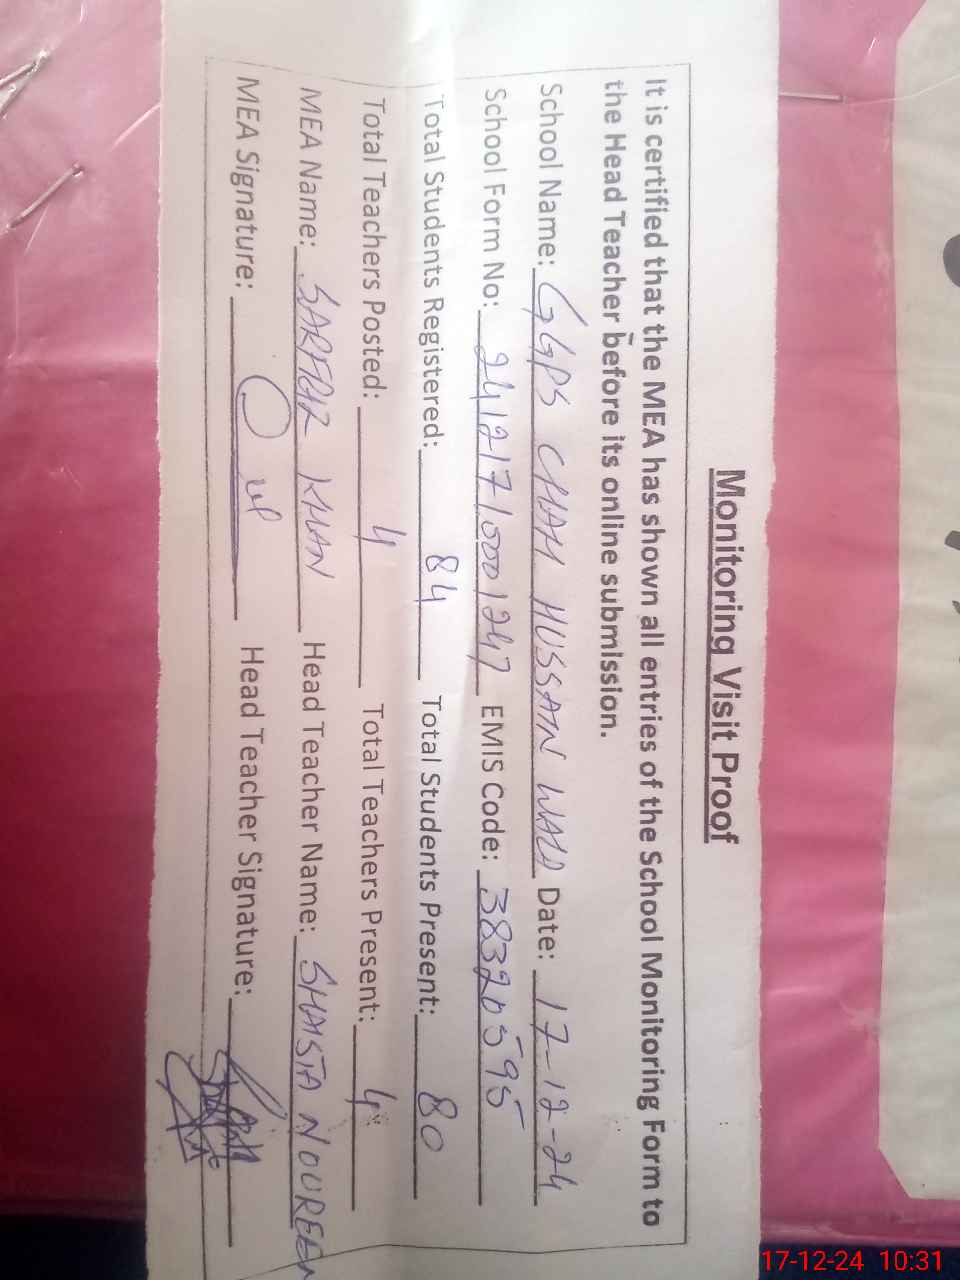 Monitoring Visit Proof
It is certified that the MEA has shown all entries of the School Monitoring Form to
the Head Teacher before its online submission.
School Name: GGPS CHAH HUSSAIN WALA Date: 17-12-24
School Form No: 24121710001247 EMIS Code: 38320595
Total Students Registered: 84 Total Students Present: 80
Total Teachers Posted: 4 Total Teachers Present: 4
MEA Name: SARFRAZ KHAN Head Teacher Name: SHAISTA NOUREEN
MEA Signature: Head Teacher Signature:
17-12-24 10:31